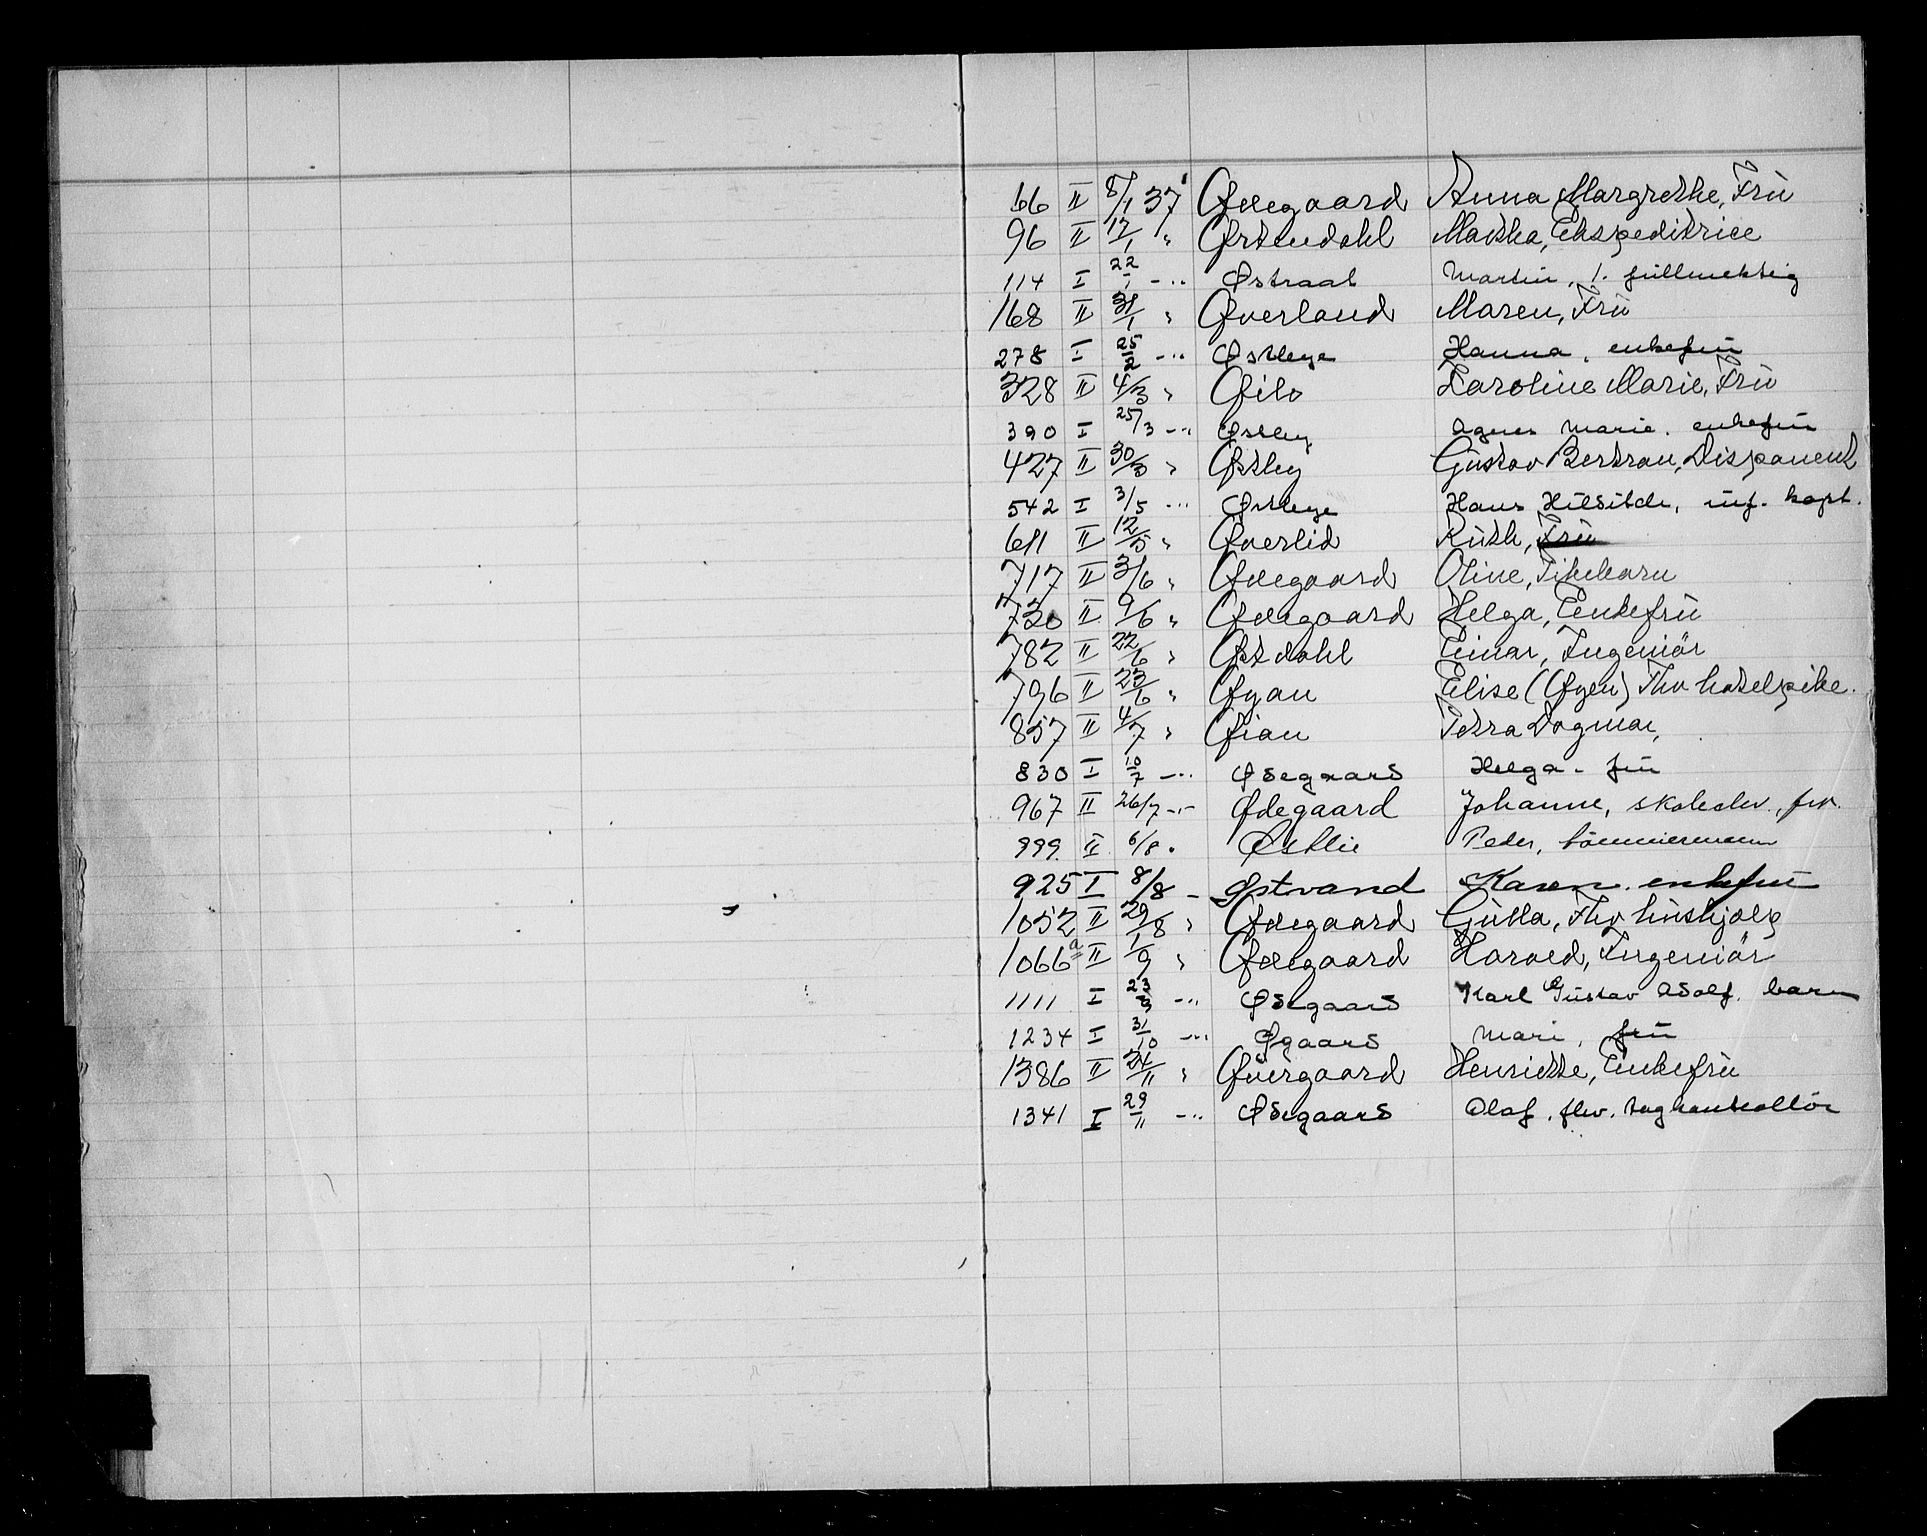 66 II 8/1 37 Ødegaard Anna Margrethe, Frü
96 II 12/1 " Østendahl Martha, Ekspeditrice
114 I 22/1 -"- Østraat Martin, 1. füllmektig
168 II 31/1 " Øverland Maren, Frü
278 I 25/2 -"- Østbye Hanna, enkefrü
328 II 4/3 " Øilo Karoline Marie, Frü
390 I 25/3 -"- Østby Agnes Marie, enkefrü
427 II 30/3 " Østby Güstav Bertran, Disponent
542 I 3/5 -"- Østbye Hans, inf. kapt.
611 II 12/5 " Øverlid Rüth, Frü
717 II 3/6 " Ødegaard Oline, Pikebarn
730 II 9/6 " Ødegaard Helga, Enkefrü
782 II 22/6 " Østdahl Einar, Ingeniör
796 II 23/6 " Øyan Elise (Øyen) Fhv hotelpike.
857 II 4/7 " Øian Petra Dagmar,
830 I 10/7 -"- Ødegaard Helga - frü
967 II 26/7 -"- Ødegaard Johanne, skoleelev, frk.
999. II 6/8 " Østlie Peder, tömmermann
925 I 8/8 - Østvand Karen. enkefrü
1052 II 29/8 " Ødegaard Gütta, Fhv hüshjelp
1066a II 1/9 " Ødegaard Harald, Ingeniör
1111 I 23/9 -"- Ødegaard Karl Güstav Adolf, barn
1234 I 31/10 -"- Øgaard Mari, frü
1386 II 24/11 " Øvergaard Henriette, Enkefrü
1341 I 29/11 -"- Ødegaard Olaf, fhv. togkontrollör